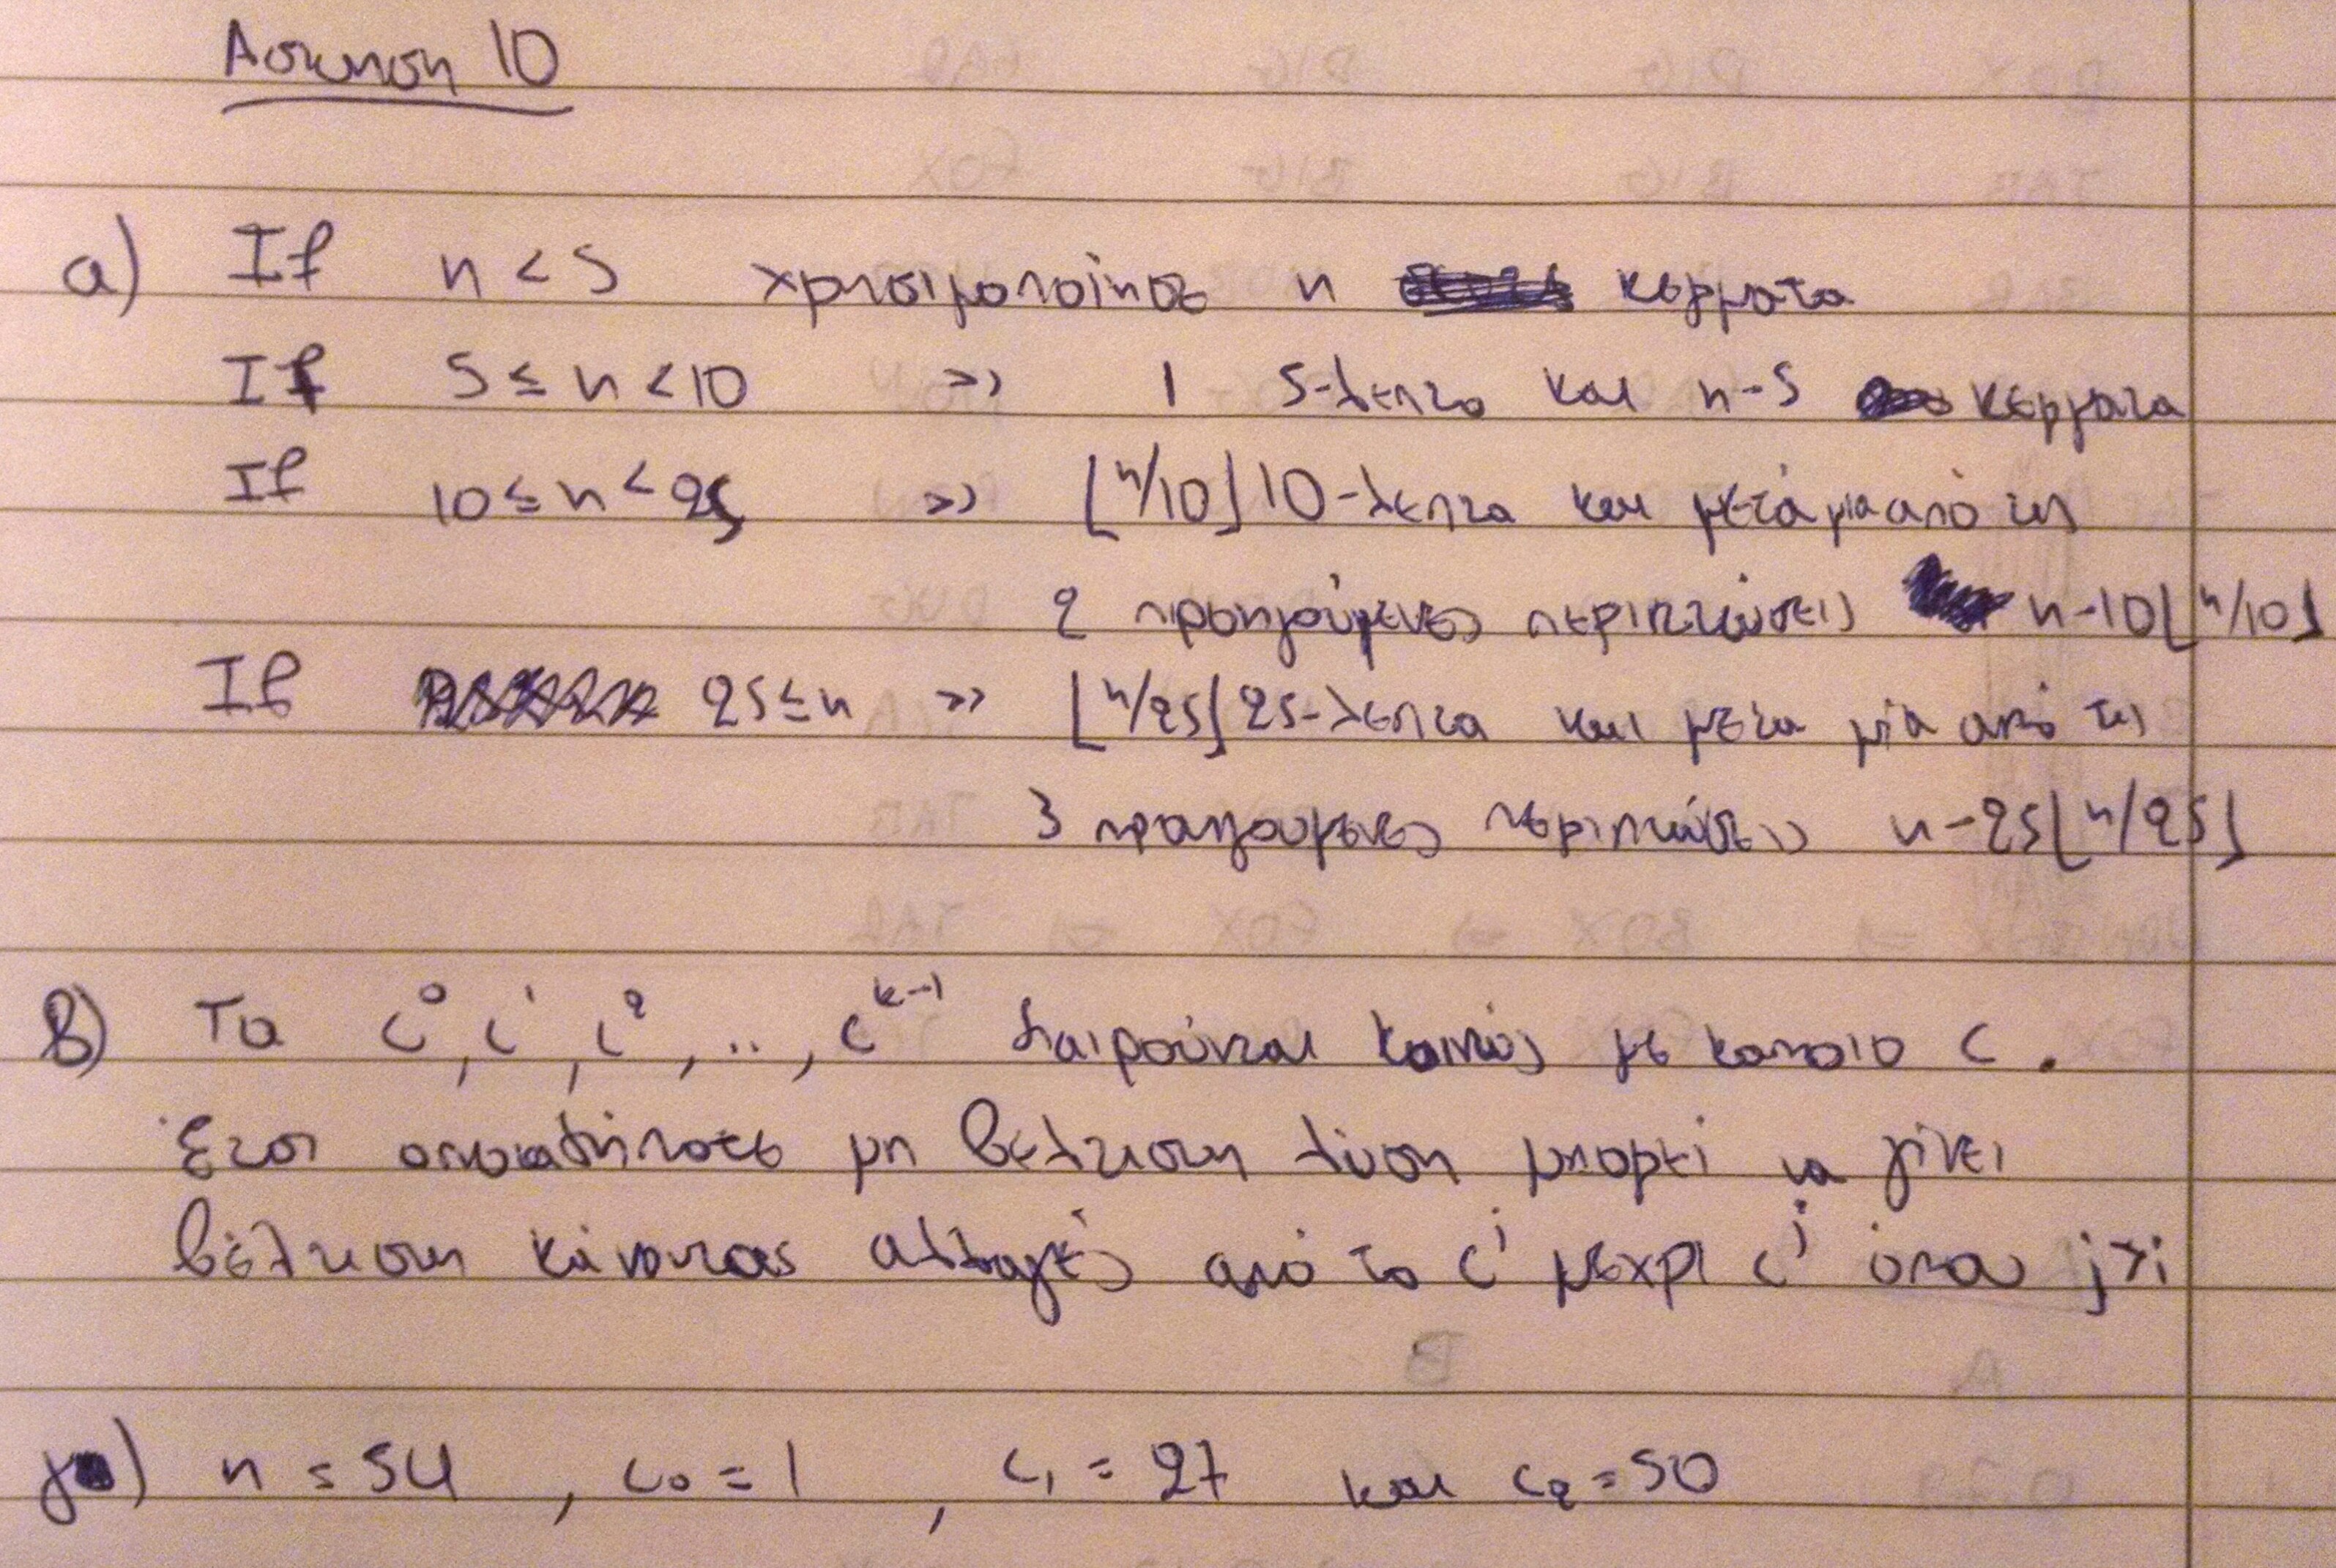 Άσκηση 10
α) If n < 5 χρησιμοποίησε n κέρματα
If 5 ≤ n < 10 >> 1 5-λεπτο και n-5 κέρματα
If 10 ≤ n < 25 >> ⌊n/10⌋ 10-λεπτα και μετά μια από τις
2 προηγούμενες περιπτώσεις n-10⌊n/10⌋
If 25 ≤ n >> ⌊n/25⌋ 25-λεπτα και μετα μία από τις
3 προηγουμενες περιπτώσεις n-25⌊n/25⌋
β) Τα c⁰, c¹, c², .., cᵏ⁻¹ διαιρούνται κοινώς με καποιο c.
Έτσι οποιαδήποτε μη βέλτιστη λύση μπορεί να γίνει
βέλτιστη κάνοντας αλλαγές από το cⁱ μέχρι cʲ όπου j>i
γ) n = 54, c₀ = 1, c₁ = 27 και c₂ = 50